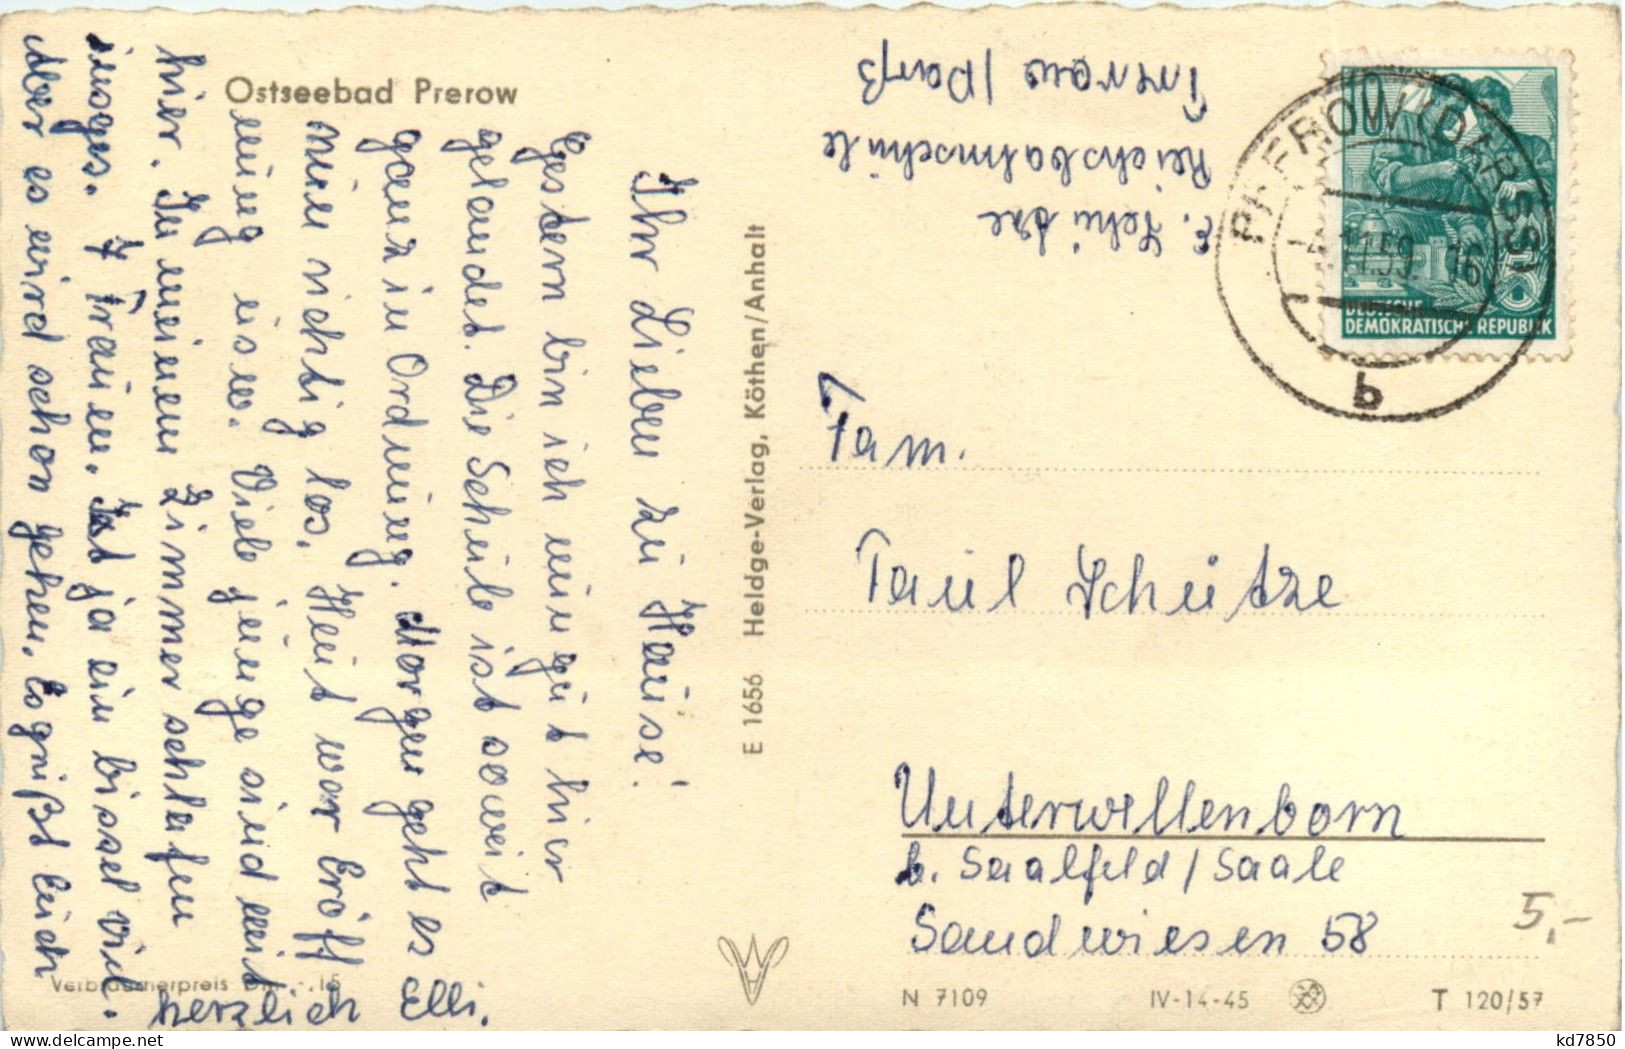 Ostseebad Prerow
Ihr Lieben zu Hause!
Gestern bin ich nun gut hier
gelandet. Die Schule ist soweit
ganz in Ordnung. Morgen geht es
nun richtig los. Heut war Eröff
nung usw. Viele junge sind mit
hier. In meinem Zimmer schlafen
insges. 7 Frauen. Ist ja ein bissel viel.
Aber es wird schon gehen. Es grüßt Euch
herzlich Elli.
Verbraucherpreis DM -.15
E 1656 Heldge-Verlag, Köthen/Anhalt
E. Schütze
Reichsbahnschule
Prerow/Darß
10
DEUTSCHE
DEMOKRATISCHE REPUBLIK
PREROW (DARSS)
-4.11.59. 16
b
Fam.
Paul Schütze
Unterwellenborn
b. Saalfeld/Saale
Sandwiesen 58
5,-
N 7109
IV-14-45
T 120/57
kd7850